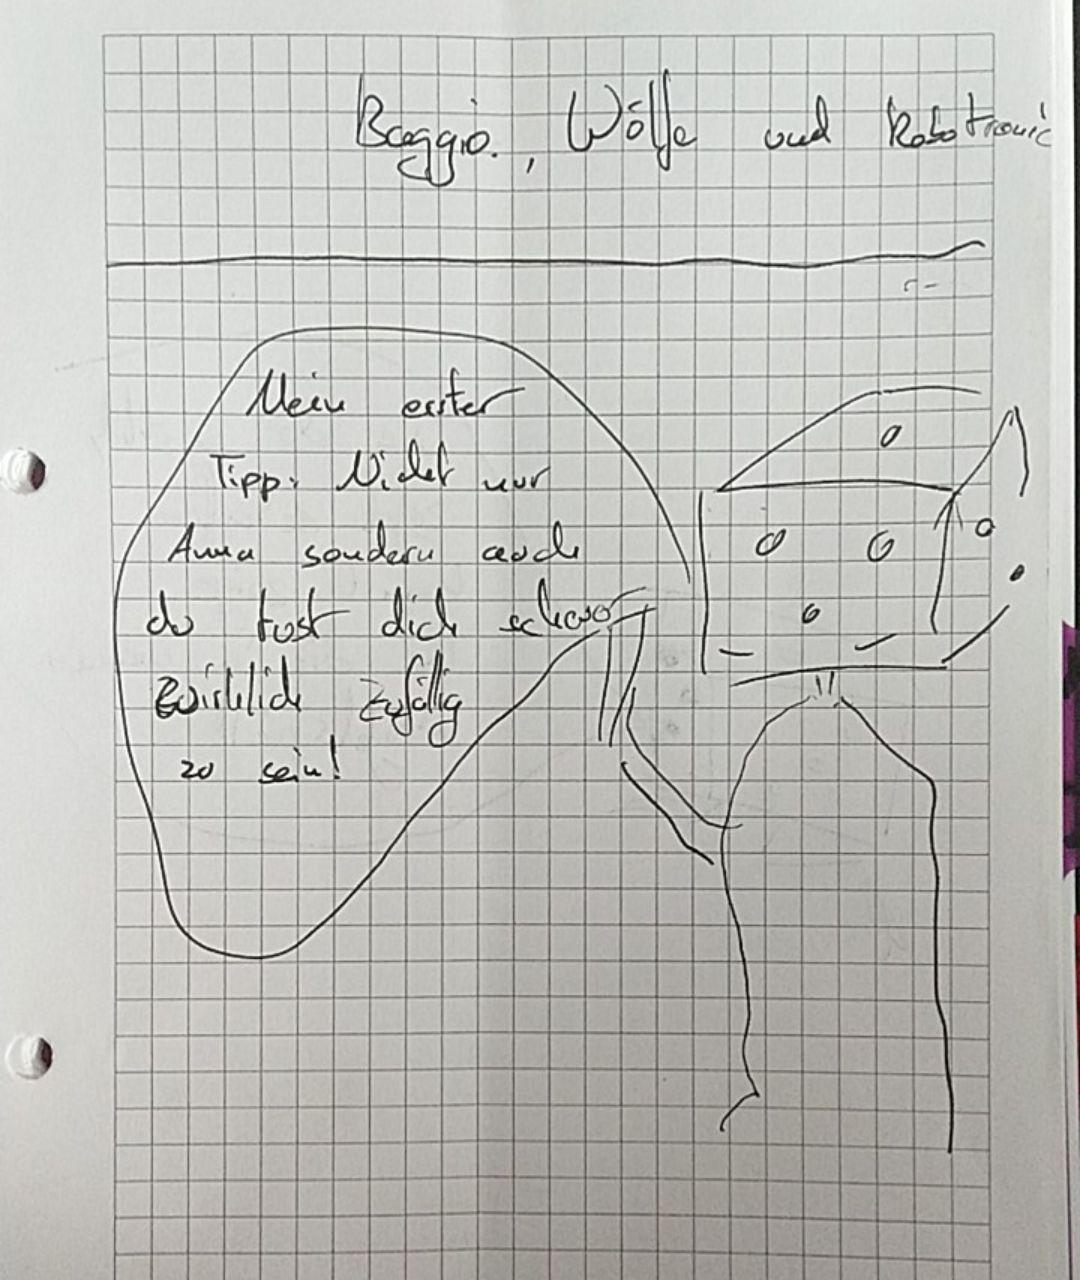 Baggio. , Wölfe und Robotronic
Mein erster
Tipp: Nicht nur
Anna sondern auch
du tust dich schwer
wirklich zufällig
zu sein!